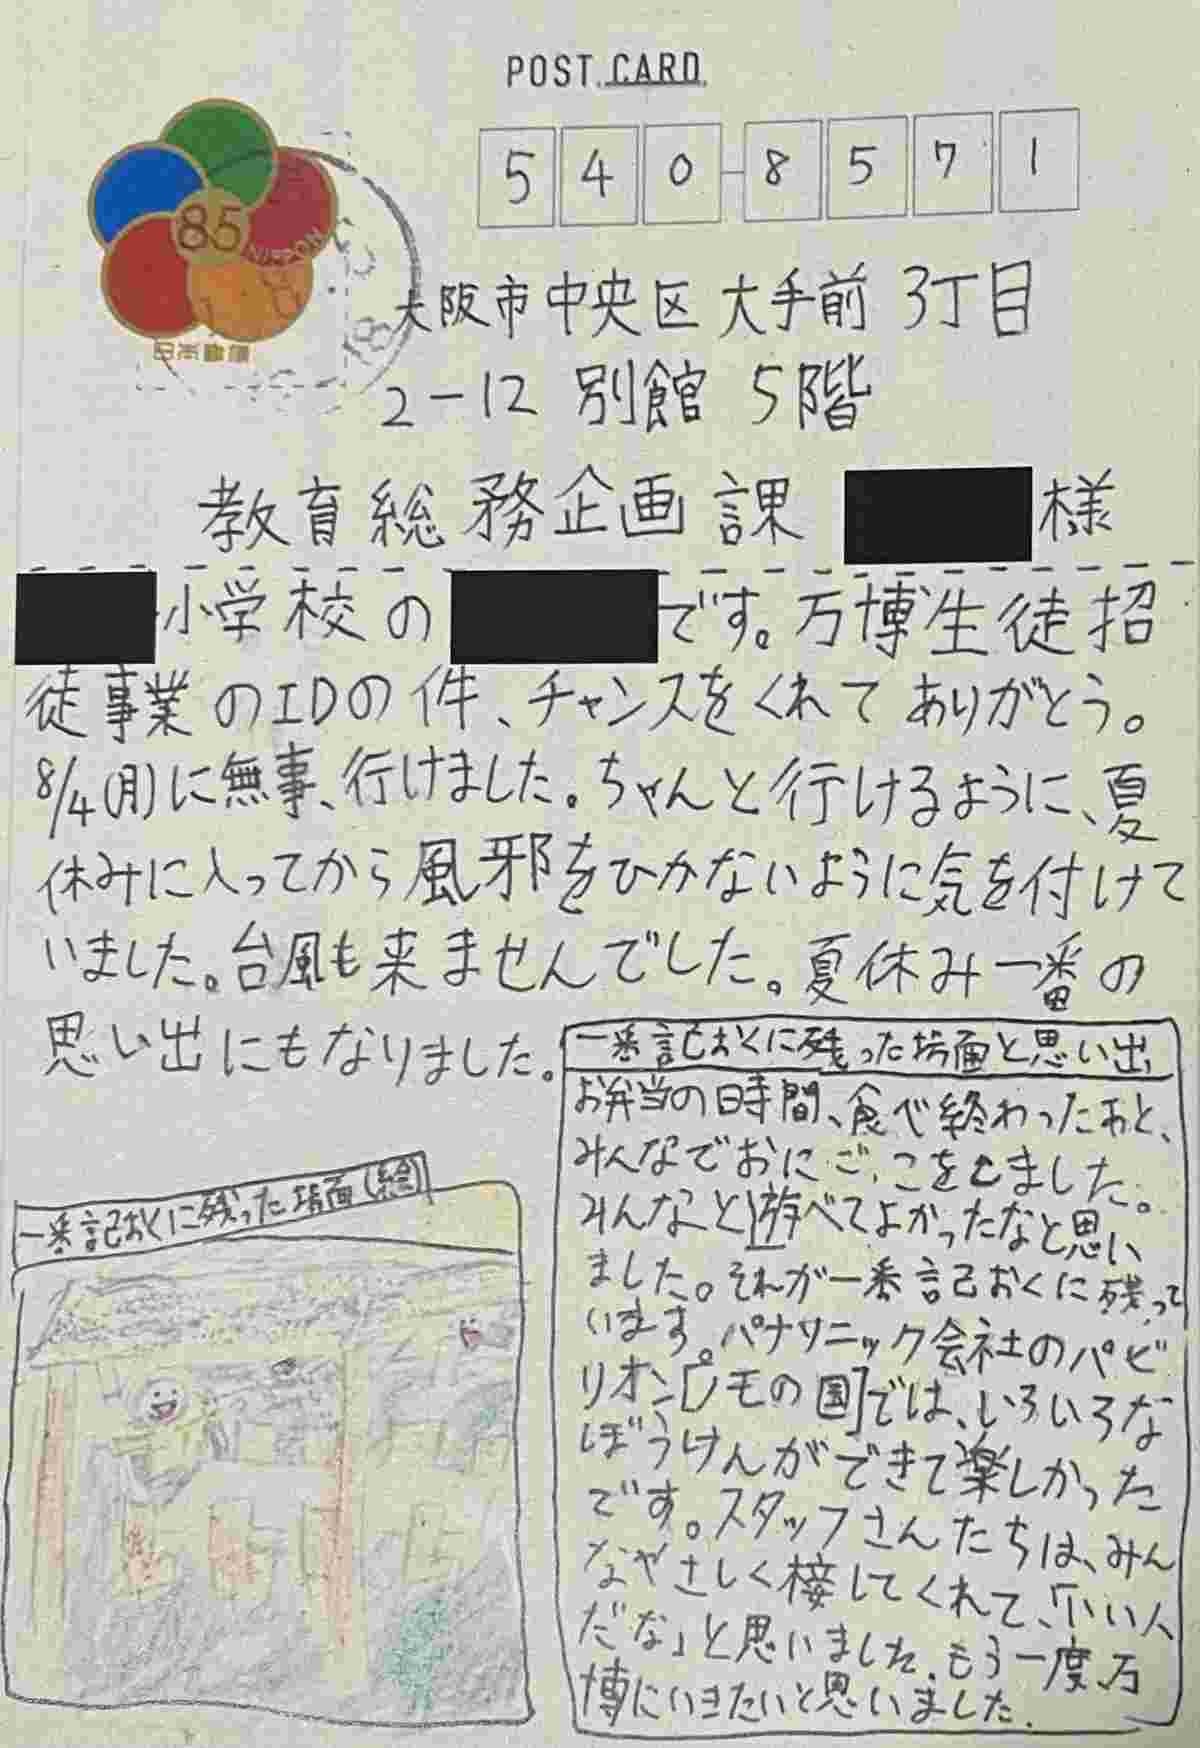 POST CARD
540-8571
85
NIPPON
日本郵便
大阪市中央区大手前3丁目
2-12 別館 5階
教育総務企画課 様
小学校の です。万博生徒招
徒事業のIDの件、チャンスをくれてありがとう。
8/4(月)に無事、行けました。ちゃんと行けるように、夏
休みに入ってから風邪をひかないように気を付けて
いました。台風も来ませんでした。夏休み一番の
思い出にもなりました。
一番記おくに残った場面と思い出
お弁当の時間、食べ終わったあと、
みんなでおにごっこをしました。
みんなと遊べてよかったなと思い
ました。それが一番記おくに残って
います。パナソニック会社のパビ
リオン[ノモの国]では、いろいろな
ぼうけんができて楽しかった
です。スタッフさんたちは、みん
なやさしく接してくれて、「いい人
だな」と思いました。もう一度、万
博にいきたいと思いました。
一番記おくに残った場面(絵)